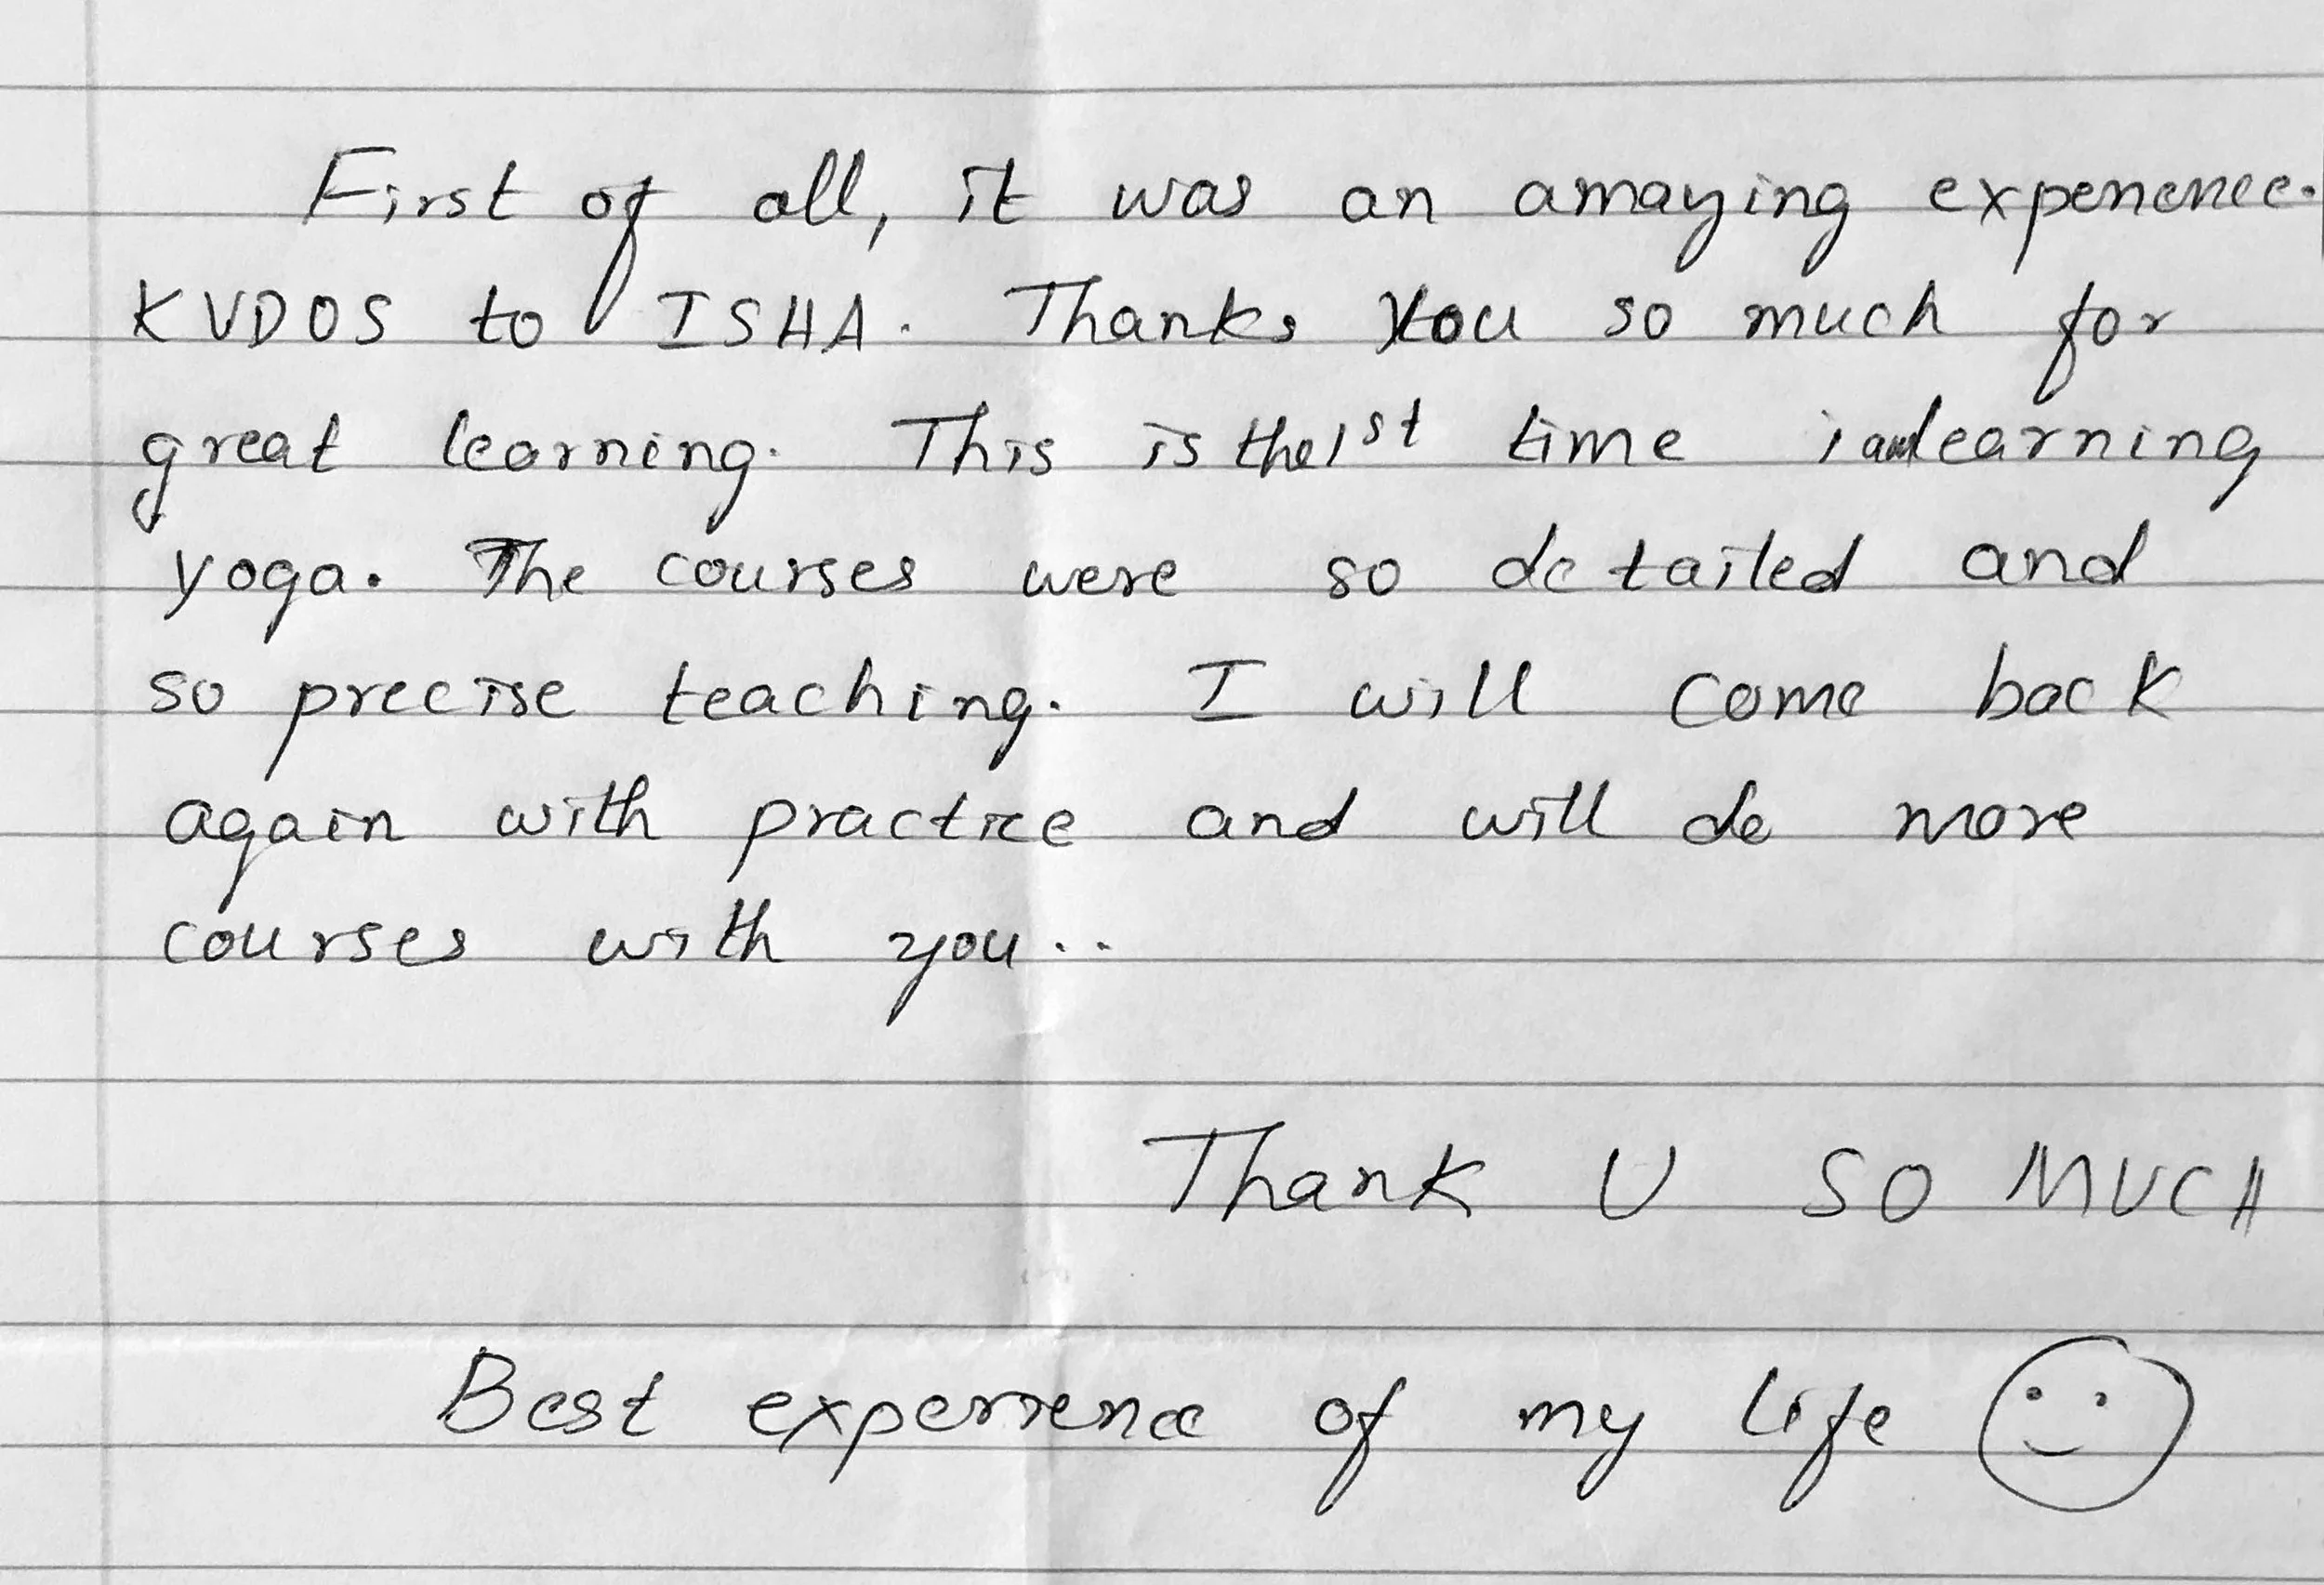 First of all, it was an amazing experience.
KUDOS to ISHA. Thanks You so much for
great learning. This is the 1st time i am learning
yoga. The courses were so detailed and
so precise teaching. I will come back
again with practice and will do more
courses with you..
Thank U SO MUCH
Best experience of my life